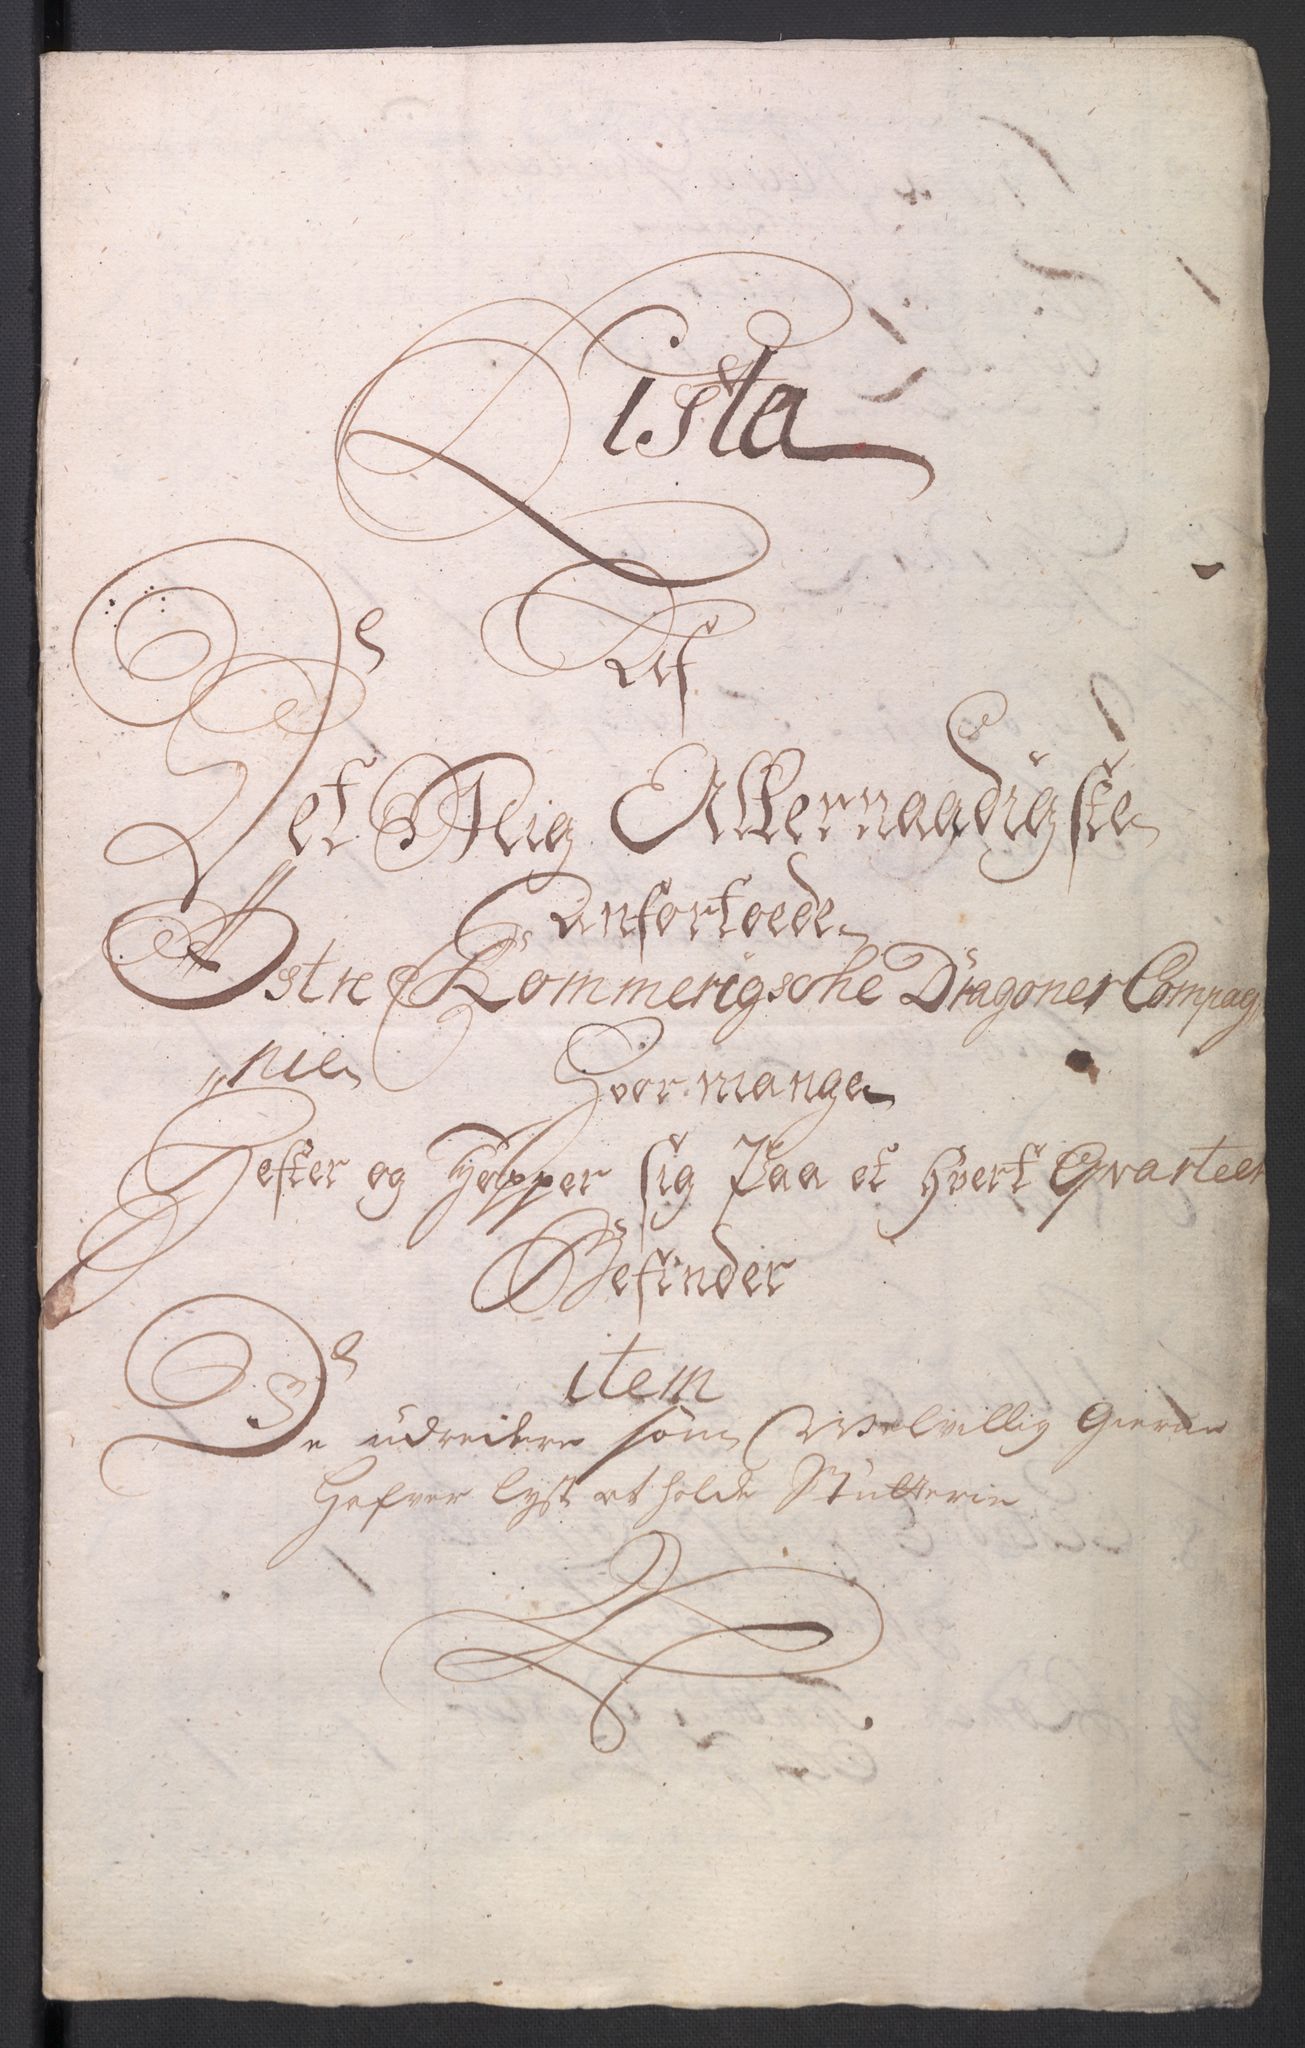 Lista
Af
Det Mig Allernaadigste
anfortroede
Östre Rommerigsche Dragoner Compag
"nie Hvor mange
Hester og Hopper sig Paa et hvert Qvarteer
Befinder
item
De udreidere som Welvillig Gierne
Hafver lyst at holde Stutterie